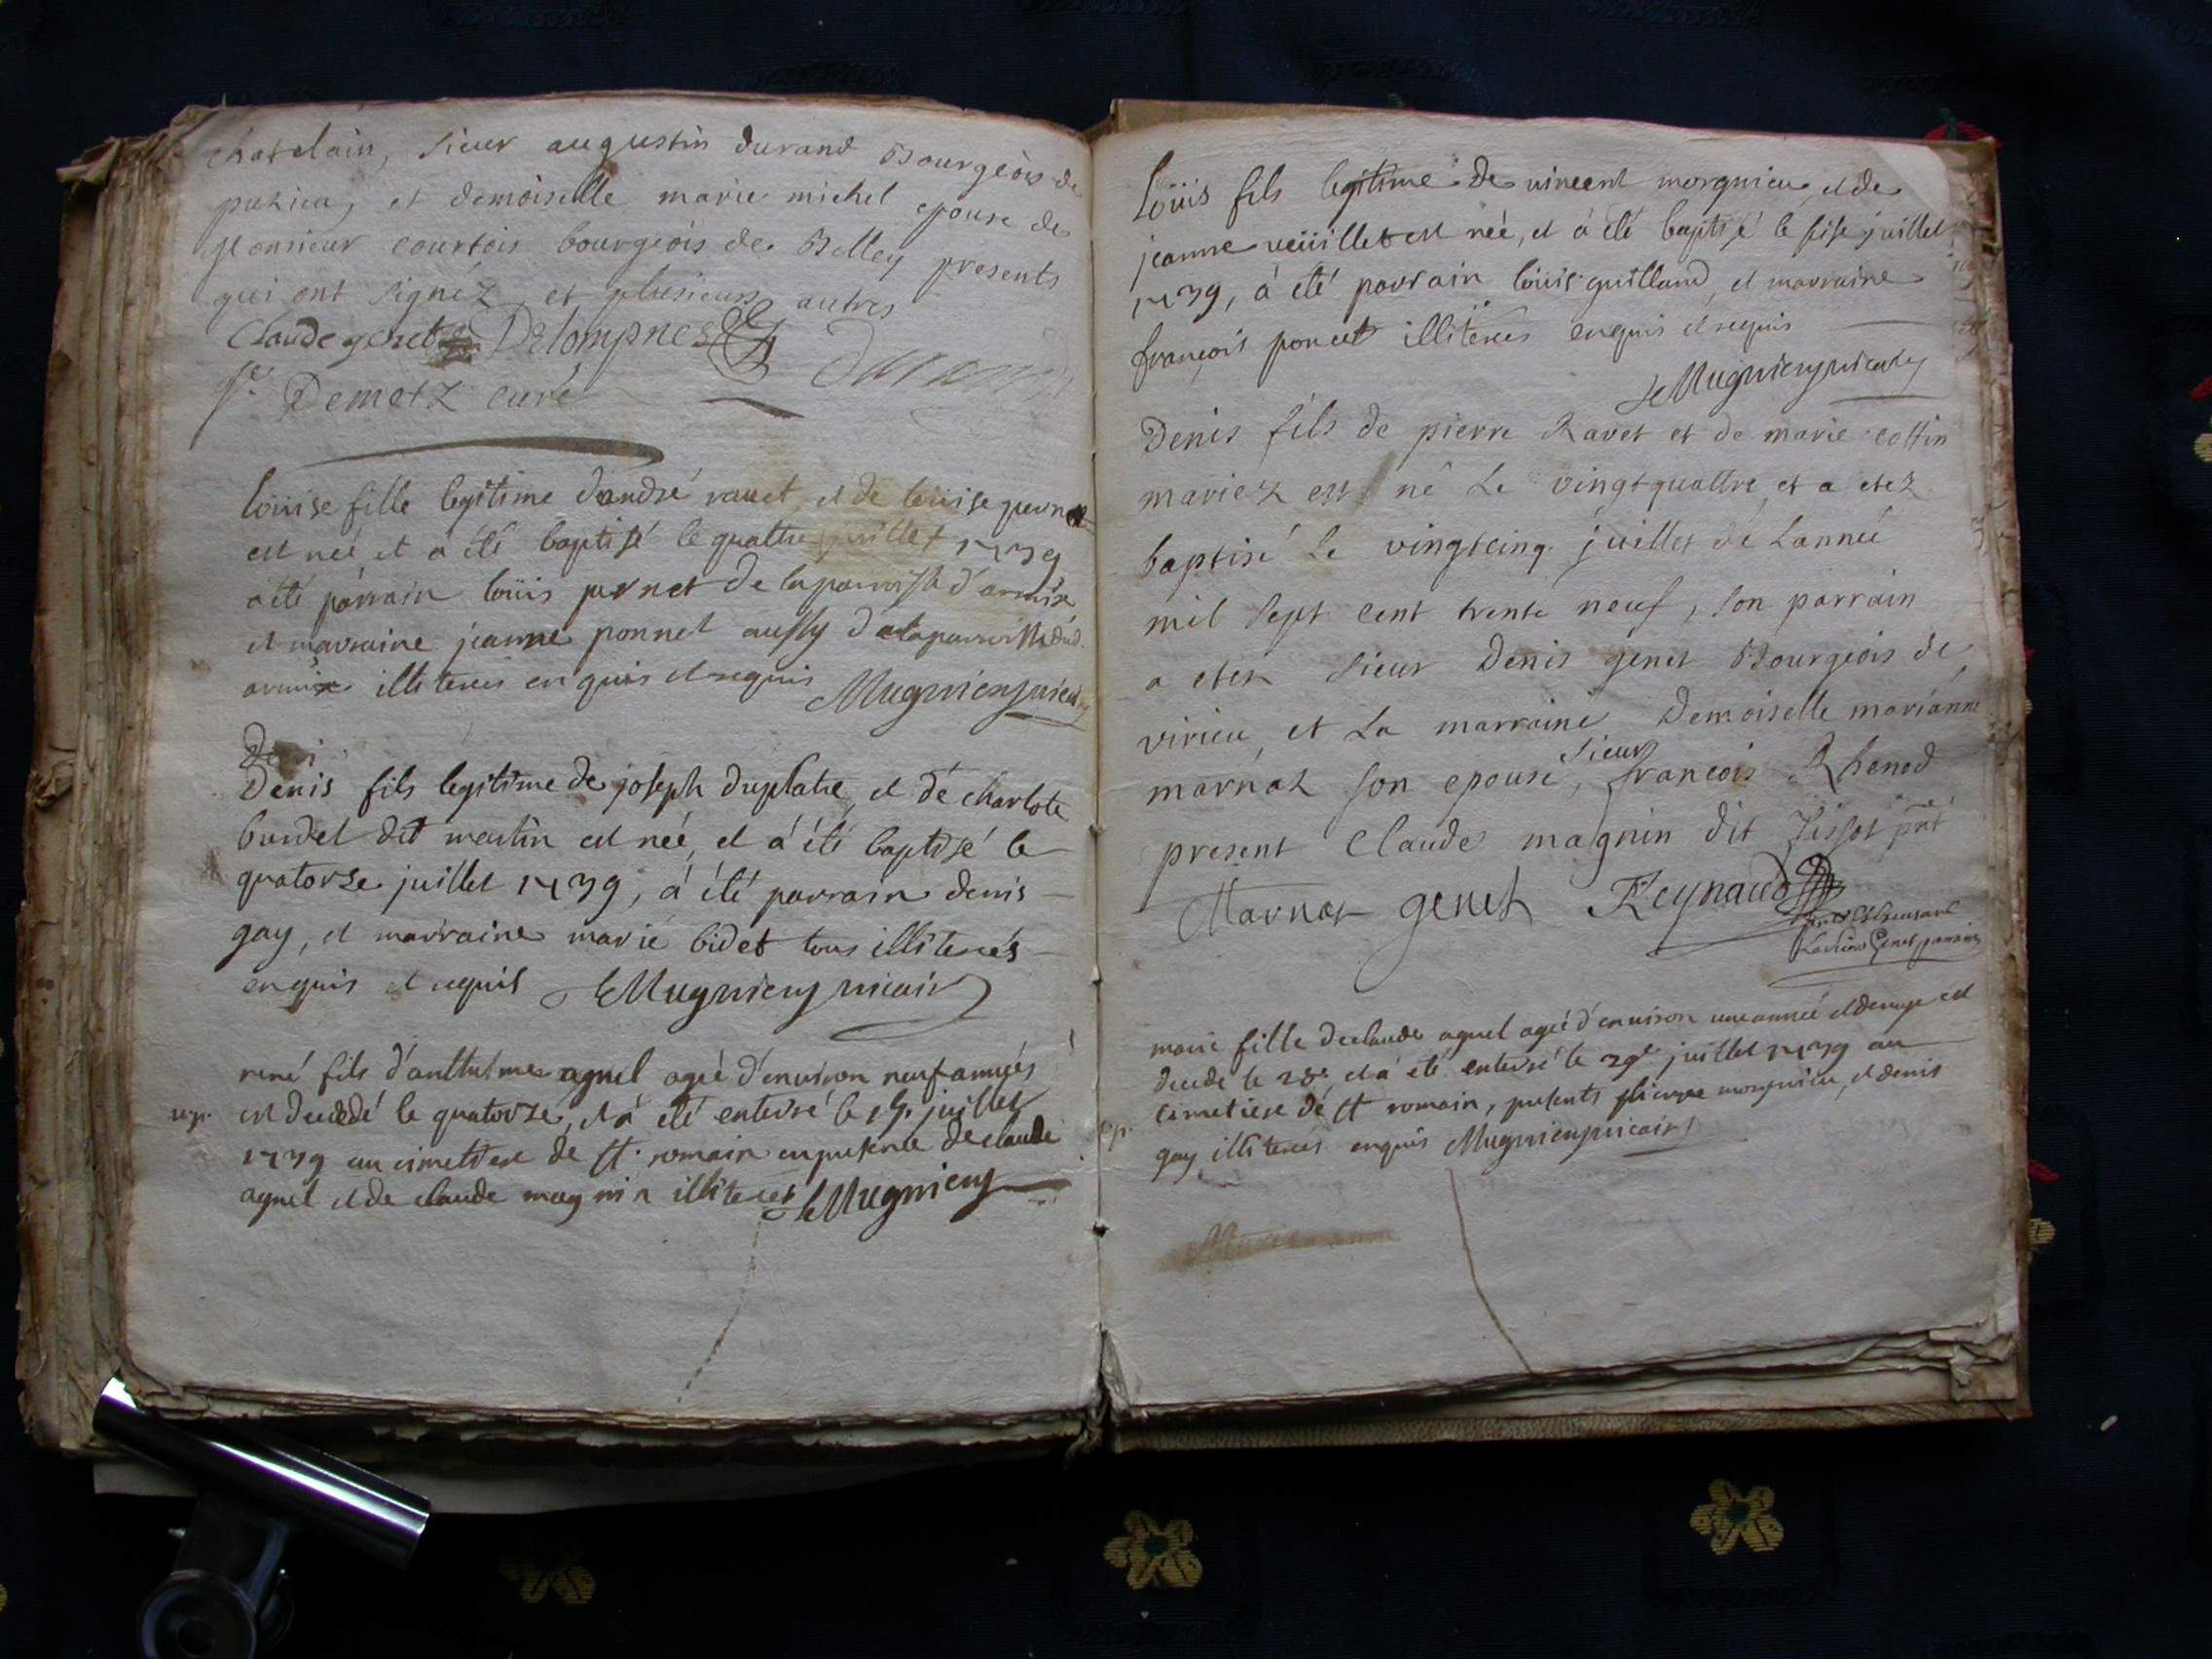 chatelain, sieur augustin durand Bourgeois de
puzieu, et demoiselle marie michel epouse de
Monsieur courtois bourgeois de Belley presents
qui ont signéz, et plusieurs autres
Claude genet Delompnes Durand
Demetz curé
loüise fille legitime d'andré ravet, et de loüise pernet
est neé, et à été baptisé le quattre juillet 1739
a été parrain loüis pernet de la parroisse d'armix
et marraine jeanne ponnet aussy de la parroisse dud.
armix illiterés enquis et requis Mugnier vicaire
Deni
Denis fils legitime de joseph duplatre, et de charlote
burdet dit martin est neé, et à été baptisé le
quatorze juillet 1739, à été parrain denis
gay, et marraine marie bidet tous illiterés
enquis et requis Mugnier vicaire
rené fils d'anthelme aynel ageé d'environ neuf anneés
est decedé le quatorze, et à été enterré le 15e juillet
1739 au cimettiere de st romain en presence de claude
aynel et de claude magnin illiteres Mugnier
loüis fils legitime de vincent morgnieu, et de
jeanne veüillet est neé, et à été baptisé le seise juillet
1739, à été parrain loüis guilland, et marraine
françois poncet illiterés enquis et requis
Mugnier vicaire
Denis fils de pierre Ravet et de marie cottin
mariez est né Le vingt quattre et a etez
baptisé Le vingt cinq juillet de Lanneé
mil sept cent trente neuf, son parrain
a etez sieur Denis genet Bourgeois de
virieu, et La marraine Demoiselle marianne
marnaz son epouse, sieur francois Rhenod
present Claude magnin dit Tissot pnt
Marnaz genet Reynaud
genet parrain
marie fille de claude aynel ageé d'environ une anneé et demye est
decede le 28e, et à été enterré le 29e juillet 1739 au
cimetiere de st romain, presents pierre morgnieu, et denis
gay illiterés enquis Mugnier vicaire